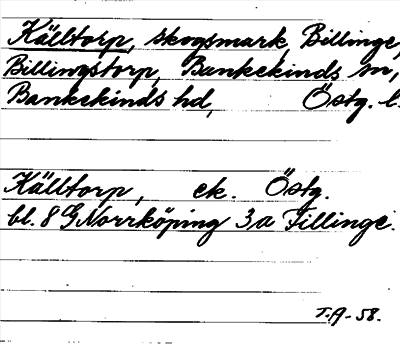 Källtorp, skogsmark, Billinge,
Billingstorp, Bankekinds sn,
Bankekinds hd, Östg. l.
Källtorp, ek. Östg.
bl. 8 G Norrköping 3a Fillinge.
T.A-58.